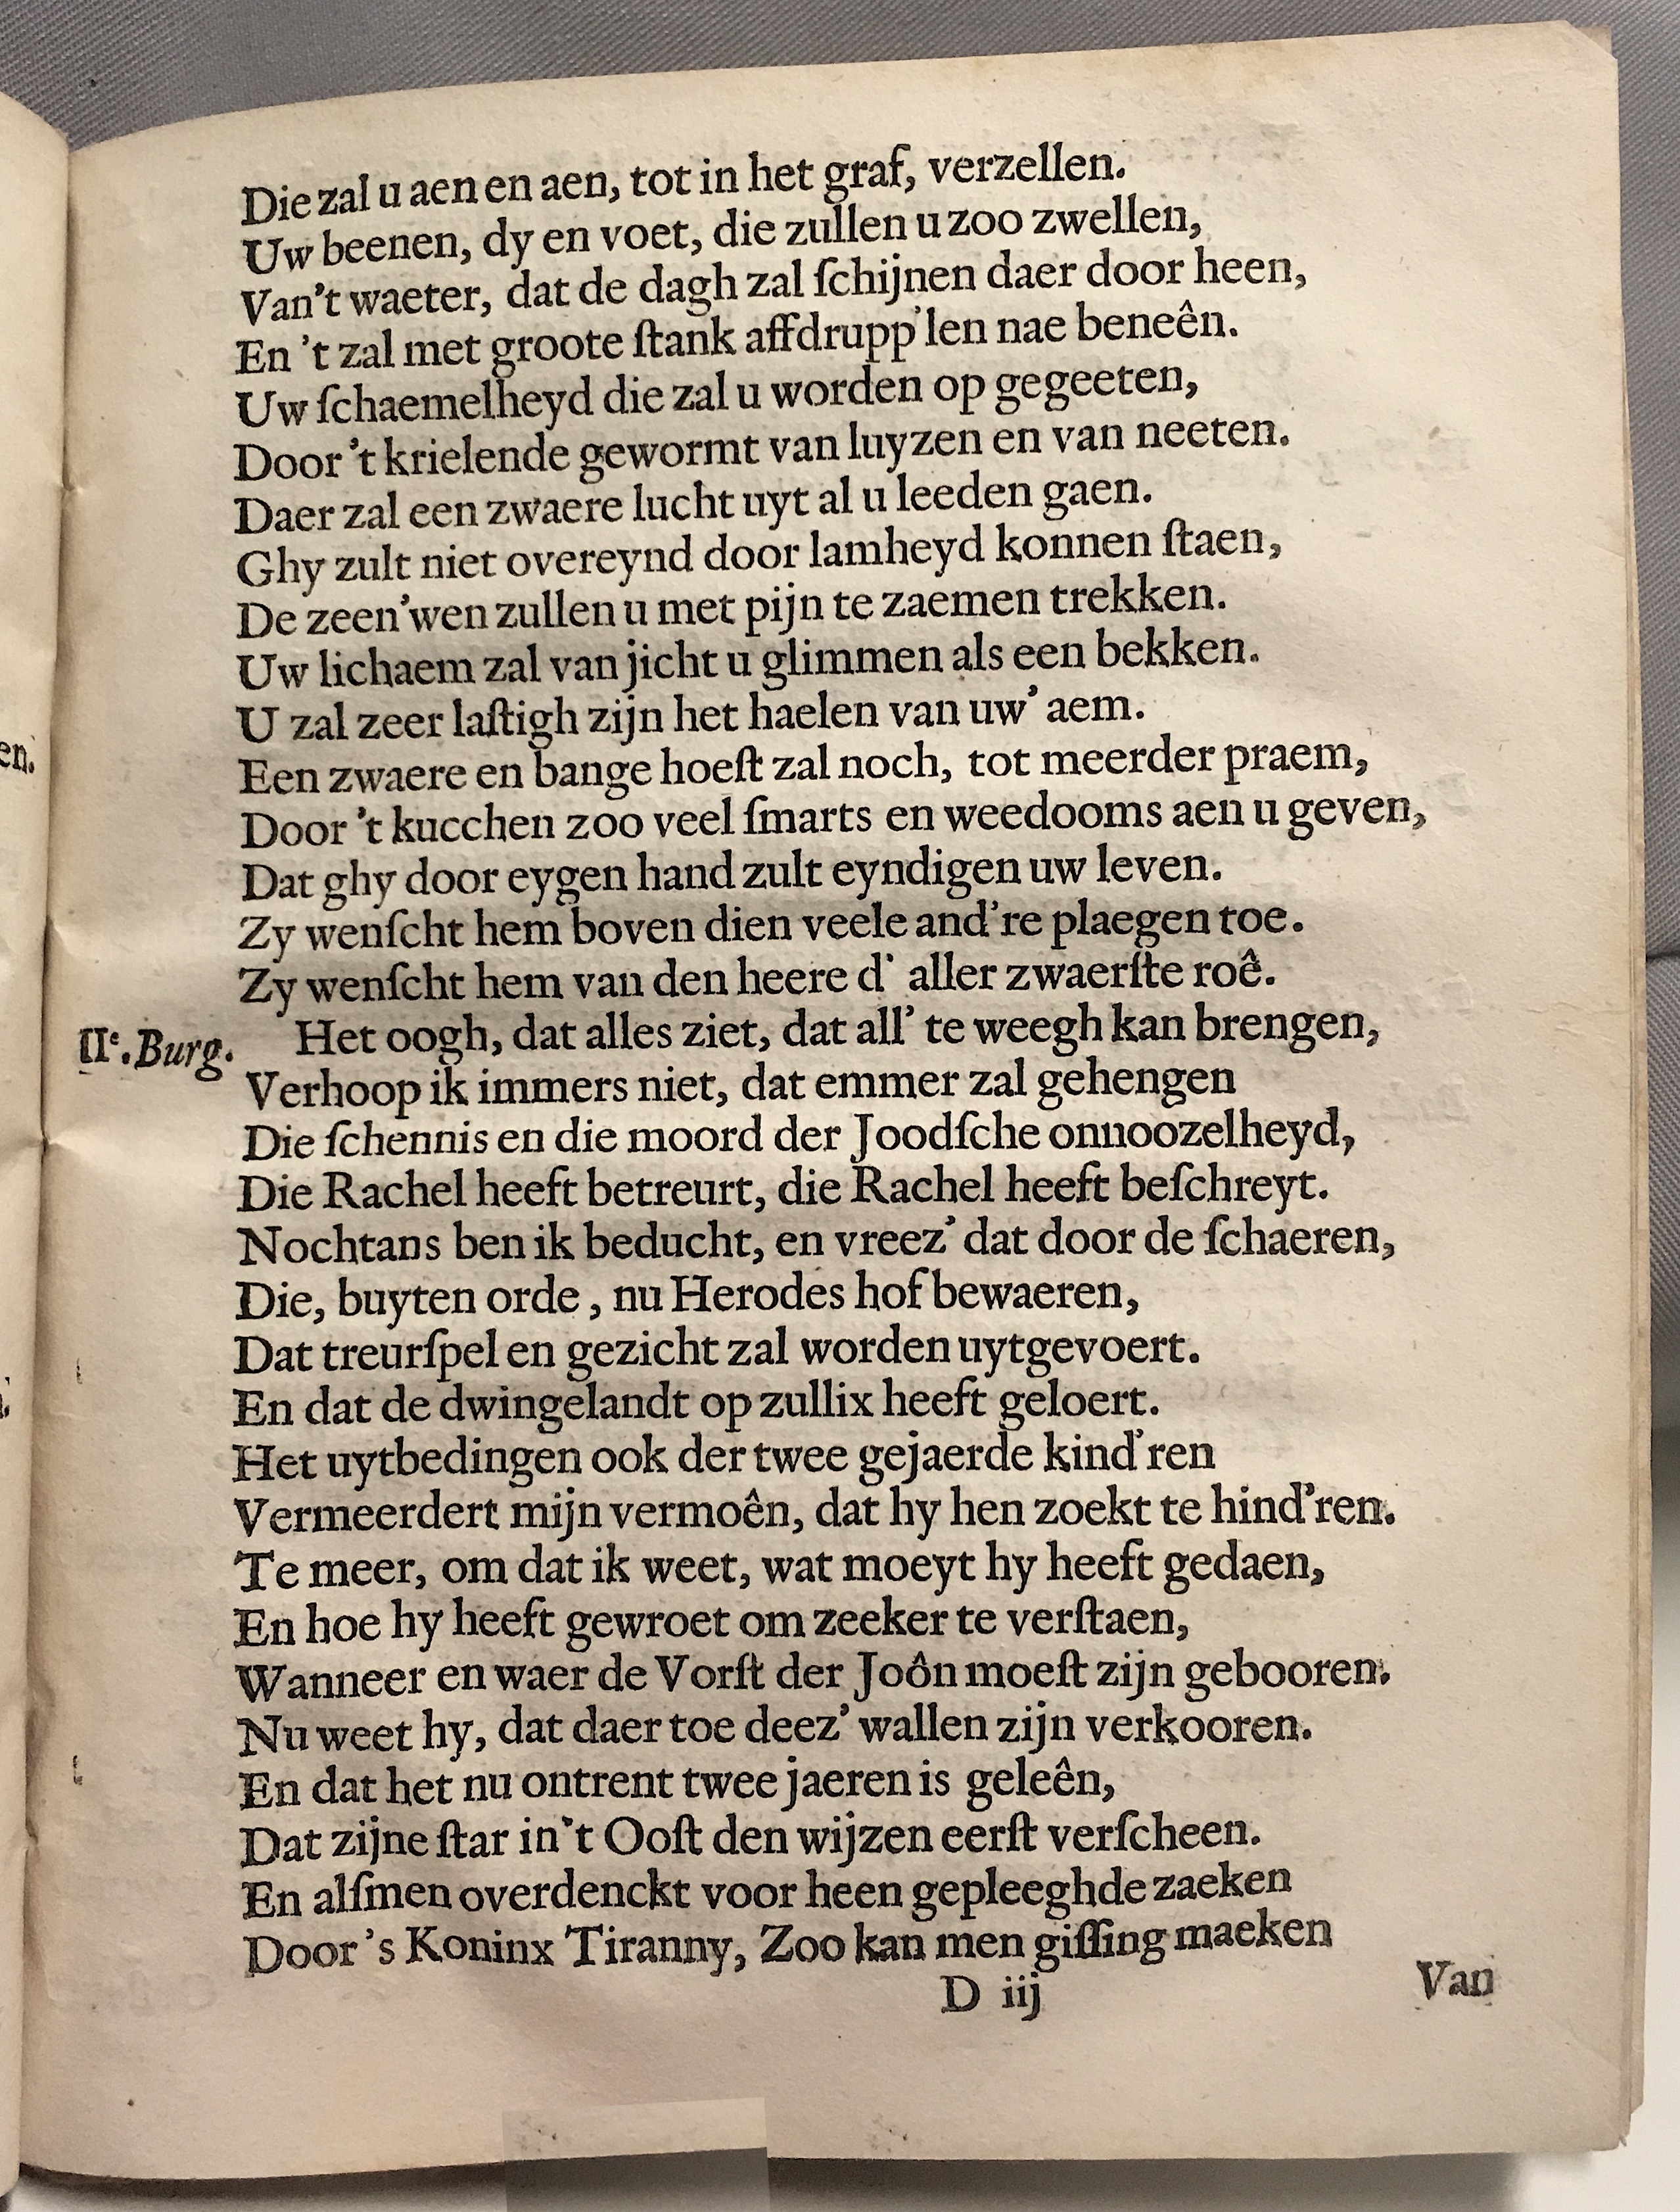 Die zal u aen en aen, tot in het graf, verzellen.
Uw beenen, dy en voet, die zullen u zoo zwellen,
Van't waeter, dat de dagh zal ſchijnen daer door heen,
En 't zal met groote ſtank affdrupp'len nae beneên.
Uw ſchaemelheyd die zal u worden op gegeeten,
Door 't krielende gewormt van luyzen en van neeten.
Daer zal een zwaere lucht uyt al u leeden gaen.
Ghy zult niet overeynd door lamheyd konnen ſtaen,
De zeen'wen zullen u met pijn te zaemen trekken.
Uw lichaem zal van jicht u glimmen als een bekken.
U zal zeer laſtigh zijn het haelen van uw' aem.
Een zwaere en bange hoeſt zal noch, tot meerder praem,
Door 't kucchen zoo veel ſmarts en weedooms aen u geven,
Dat ghy door eygen hand zult eyndigen uw leven.
Zy wenſcht hem boven dien veele and're plaegen toe.
Zy wenſcht hem van den heere d' aller zwaerſte roê.
IIe. Burg. Het oogh, dat alles ziet, dat all' te weegh kan brengen,
Verhoop ik immers niet, dat emmer zal gehengen
Die ſchennis en die moord der Joodſche onnoozelheyd,
Die Rachel heeft betreurt, die Rachel heeft beſchreyt.
Nochtans ben ik beducht, en vreez' dat door de ſchaeren,
Die, buyten orde, nu Herodes hof bewaeren,
Dat treurſpel en gezicht zal worden uytgevoert.
En dat de dwingelandt op zullix heeft geloert.
Het uytbedingen ook der twee gejaerde kind'ren
Vermeerdert mijn vermoên, dat hy hen zoekt te hind'ren.
Te meer, om dat ik weet, wat moeyt hy heeft gedaen,
En hoe hy heeft gewroet om zeeker te verſtaen,
Wanneer en waer de Vorſt der Joôn moeſt zijn gebooren.
Nu weet hy, dat daer toe deez' wallen zijn verkooren.
En dat het nu ontrent twee jaeren is geleên,
Dat zijne ſtar in't Ooſt den wijzen eerſt verſcheen.
En alſmen overdenckt voor heen gepleeghde zaeken
Door 's Koninx Tiranny, Zoo kan men giſſing maeken
D iij
Van